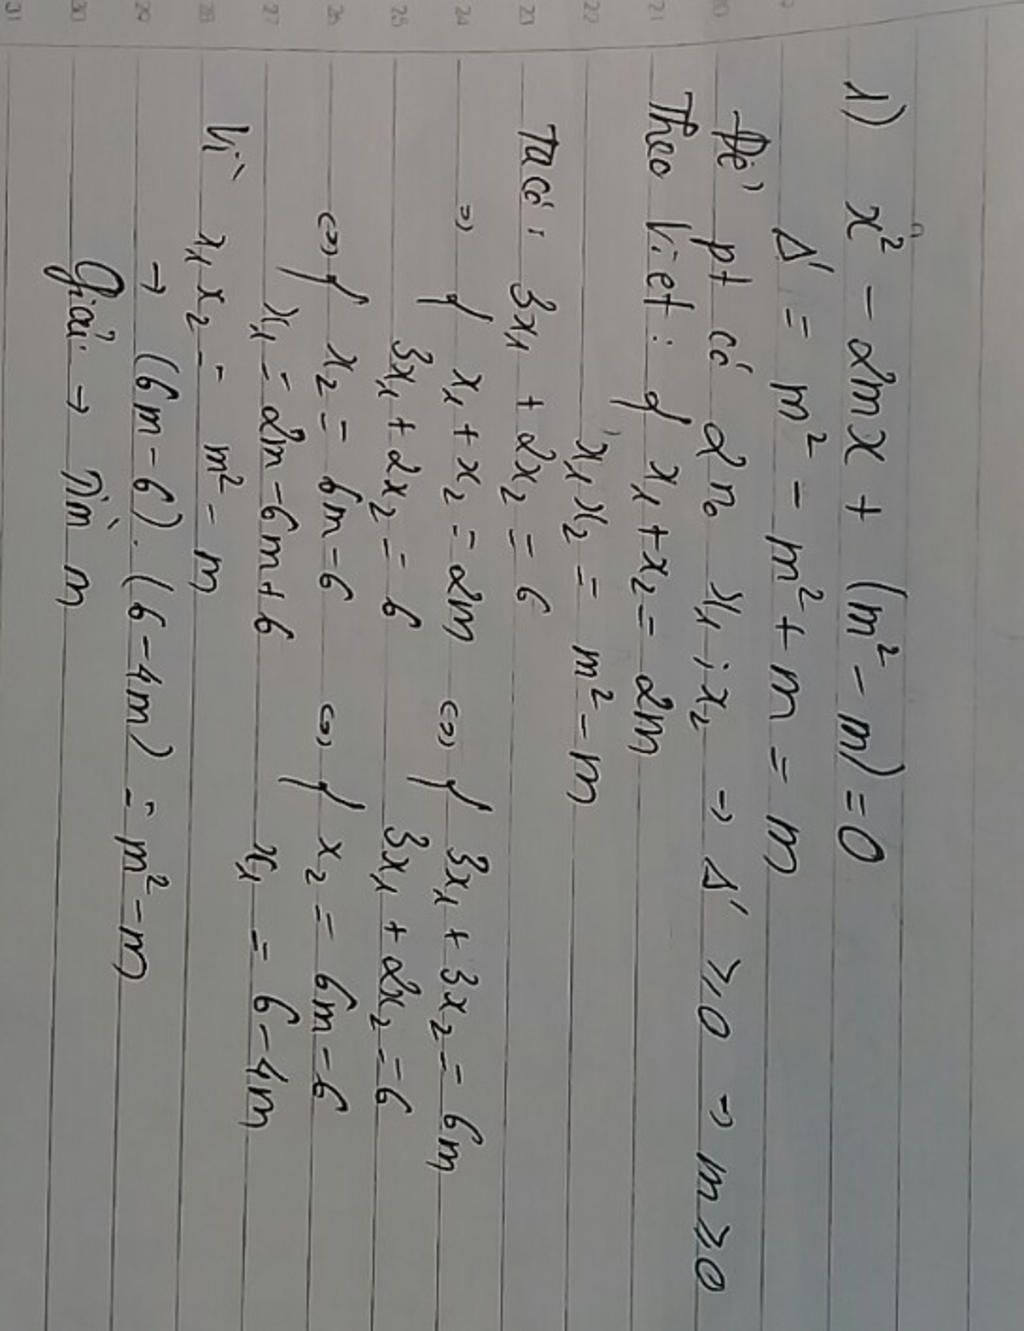 1) x² - 2mx + (m² - m) = 0
Δ' = m² - m² + m = m
Để pt có 2 n₀ x₁ ; x₂ → Δ' ≥ 0 → m ≥ 0
Theo Viet : { x₁ + x₂ = 2m
x₁x₂ = m² - m
Ta có : 3x₁ + 2x₂ = 6
⇒ { x₁ + x₂ = 2m ⇔ { 3x₁ + 3x₂ = 6m
3x₁ + 2x₂ = 6 3x₁ + 2x₂ = 6
⇔ { x₂ = 6m - 6 ⇔ { x₂ = 6m - 6
x₁ = 2m - 6m + 6 x₁ = 6 - 4m
Vì x₁x₂ = m² - m
→ (6m - 6).(6 - 4m) = m² - m
Giải → Tìm m
20
21
22
23
24
25
26
27
28
29
30
31